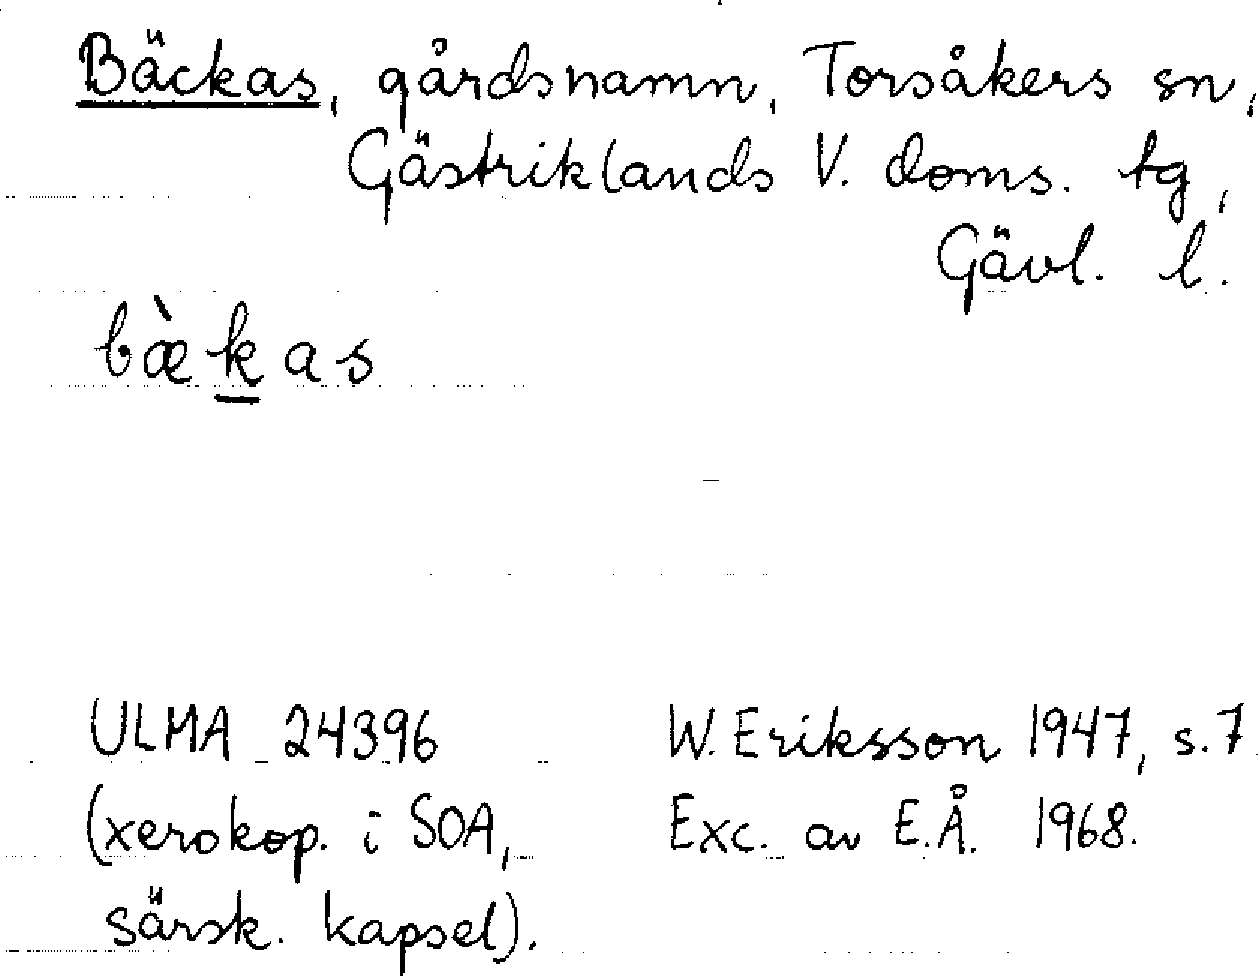 Bäckas, gårdsnamn, Torsåkers sn,
Gästriklands V. doms. tg,
Gävl. l.
bæ̀k̲as
ULMA 24396
(xerokop. i SOA,
särsk. kapsel).
W. Eriksson 1947, s. 7
Exc. av E.Å. 1968.